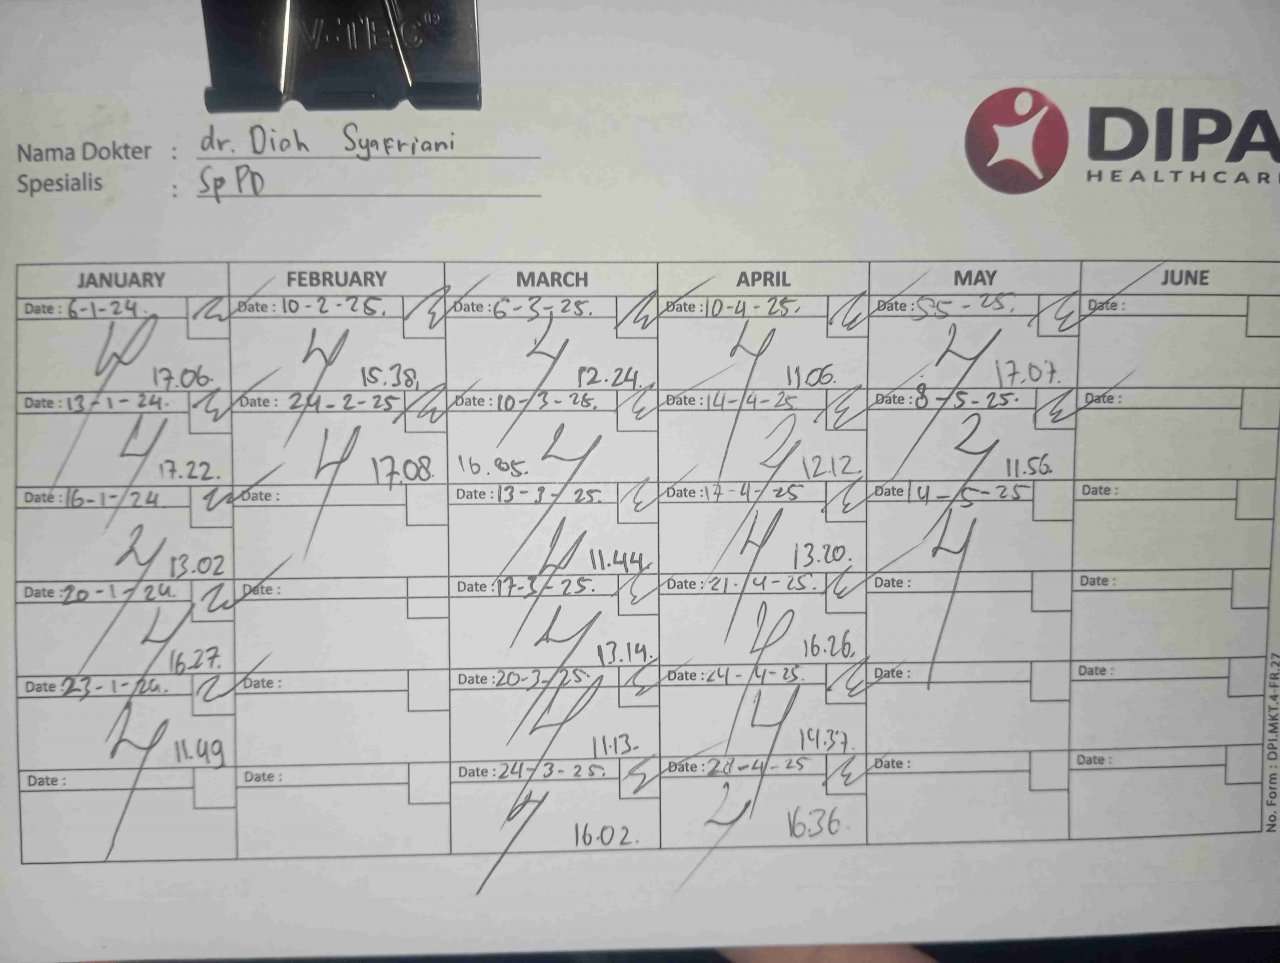 V-TEC®
Nama Dokter : dr. Diah Syafriani
Spesialis : Sp PD
DIPA
HEALTHCAR
JANUARY FEBRUARY MARCH APRIL MAY JUNE
Date : 6-1-24. Date : 10-2-25. Date : 6-3-25. Date : 10-4-25. Date : 5-5-25. Date :
17.06. 15.38. 12.24. 11.06. 17.07.
Date : 13-1-24. Date : 24-2-25 Date : 10-3-25. Date : 14-4-25 Date : 8-5-25. Date :
17.22. 17.08. 16.05. 12.12. 11.56.
Date : 16-1-24 Date : Date : 13-3-25. Date : 17-4-25 Date 14-5-25 Date :
13.02 11.44. 13.20.
Date : 20-1-24. Date : Date : 17-3-25. Date : 21-4-25. Date : Date :
16.27. 13.14. 16.26.
Date : 23-1-24. Date : Date : 20-3-25. Date : 24-4-25. Date : Date :
11.49 11.13. 14.37.
Date : Date : Date : 24-3-25. Date : 28-4-25 Date : Date :
16.02. 16.36.
No. Form : DPI.MKT.4-FR.27